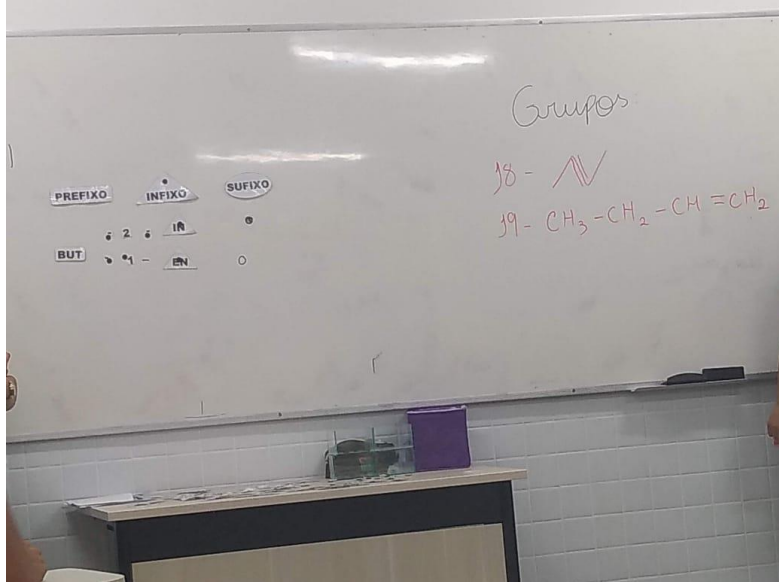 Grupos
PREFIXO INFIXO SUFIXO
2 IN
BUT 1 - EN O
18 -
19 - CH₃ - CH₂ - CH = CH₂